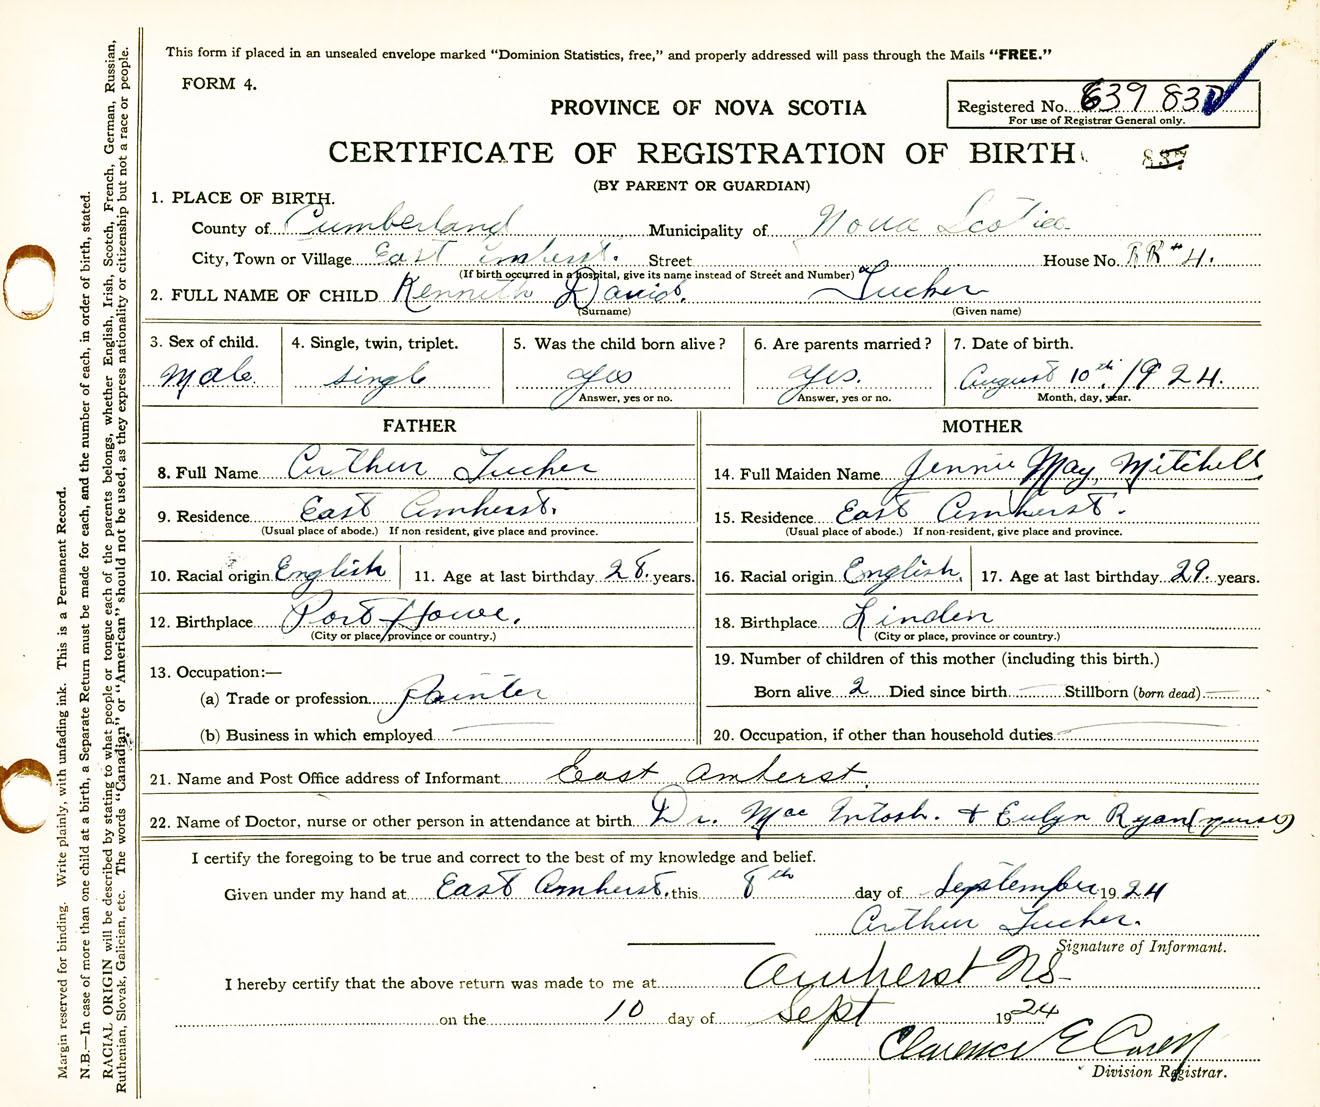 This form if placed in an unsealed envelope marked "Dominion Statistics, free," and properly addressed will pass through the Mails "FREE."
FORM 4.
PROVINCE OF NOVA SCOTIA
Registered No. 639 837
For use of Registrar General only.
CERTIFICATE OF REGISTRATION OF BIRTH
837
(BY PARENT OR GUARDIAN)
1. PLACE OF BIRTH.
County of Cumberland Municipality of Nova Scotia
City, Town or Village East Amherst. Street House No. RR#4.
(If birth occurred in a hospital, give its name instead of Street and Number)
2. FULL NAME OF CHILD Kenneth David. Tucker
(Surname) (Given name)
3. Sex of child. 4. Single, twin, triplet. 5. Was the child born alive? 6. Are parents married? 7. Date of birth.
Male. single yes yes. August 10th. 1924.
Answer, yes or no. Answer, yes or no. Month, day, year.
FATHER
8. Full Name Arthur Tucker
9. Residence East Amherst.
(Usual place of abode.) If non-resident, give place and province.
10. Racial origin English 11. Age at last birthday 28. years.
12. Birthplace Port Howe.
(City or place, province or country.)
13. Occupation:—
(a) Trade or profession Painter
(b) Business in which employed
MOTHER
14. Full Maiden Name Jennie May Mitchell
15. Residence East Amherst.
(Usual place of abode.) If non-resident, give place and province.
16. Racial origin English. 17. Age at last birthday 29. years.
18. Birthplace Linden
(City or place, province or country.)
19. Number of children of this mother (including this birth.)
Born alive 2 Died since birth — Stillborn (born dead) —
20. Occupation, if other than household duties
21. Name and Post Office address of Informant East Amherst
22. Name of Doctor, nurse or other person in attendance at birth Dr. MacIntosh. + Evelyn Ryan (nurse)
I certify the foregoing to be true and correct to the best of my knowledge and belief.
Given under my hand at East Amherst. this 8th day of September 1924
Arthur Tucker.
Signature of Informant.
I hereby certify that the above return was made to me at Amherst NS
on the 10 day of Sept 1924
Clarence E
Division Registrar.
Margin reserved for binding. Write plainly, with unfading ink. This is a Permanent Record.
N.B.—In case of more than one child at a birth, a Separate Return must be made for each, and the number of each, in order of birth, stated.
RACIAL ORIGIN will be described by stating to what people or tongue each of the parents belongs, whether English, Irish, Scotch, French, German, Russian,
Ruthenian, Slovak, Galician, etc. The words "Canadian" or "American" should not be used, as they express nationality or citizenship but not a race or people.